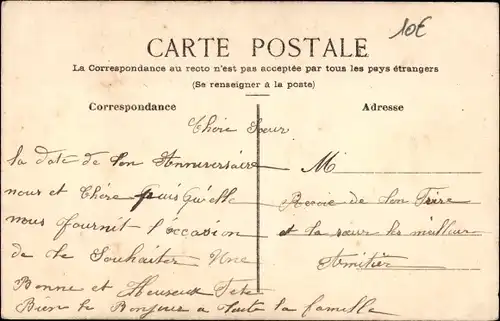 10€
CARTE POSTALE
La Correspondance au recto n'est pas acceptée par tous les pays étrangers
(Se renseigner à la poste)
Correspondance
Adresse
Chère Sœur
la date de ton Anniversaire
nous et Chère puis Qu'elle
nous fournit l'occasion
de te Souhaiter Une
Bonne et Heureux Fete
Bien le Bonjour a toute la famille
M
Recoie de ton Frère
et ta sœur les meilleur
Amitier